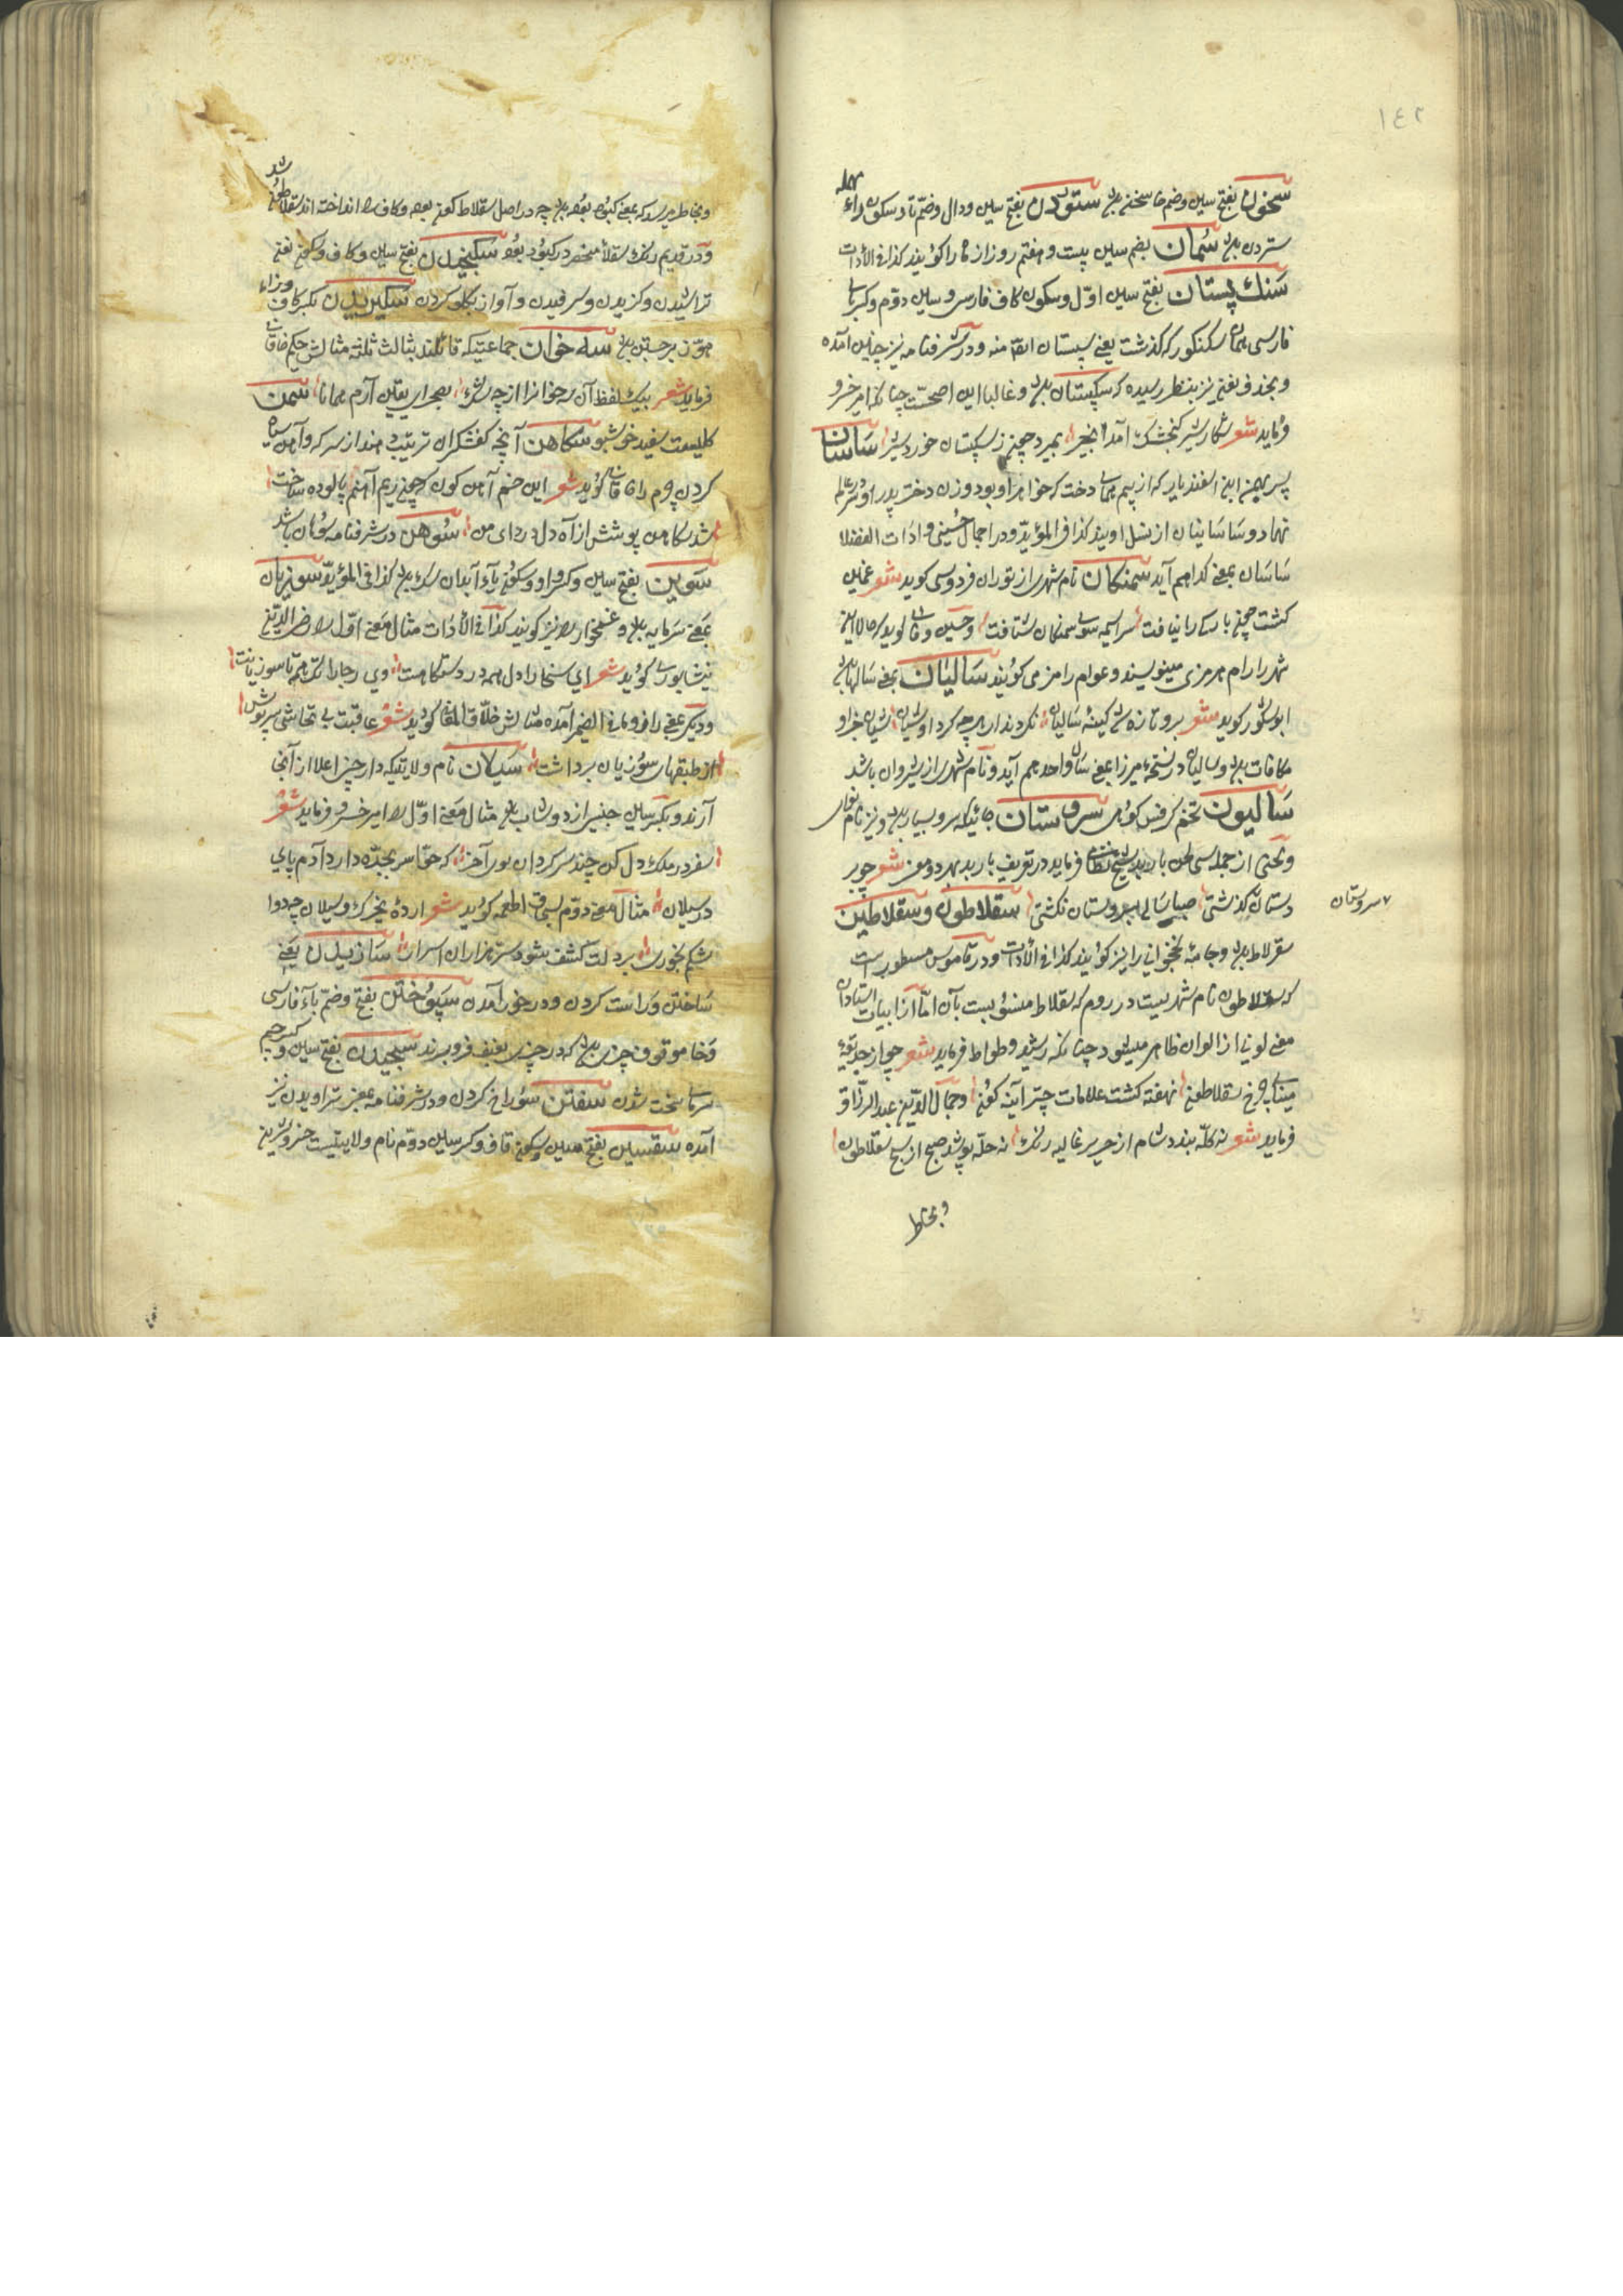 ١٤٢
سخون بفتح سین وضم خا سخن باشد ستودن بفتح سین ودال وضم تا وسکون راء مهمله
ستردن باشد سُمان بضم سین بیست و هفتم روز از ماه را کویند کذا فی الأدات
سَنك پستان بفتح سین اوّل وسکون کاف فارسی و سین دوّم وکسر باء
فارسی همان سکنکور که کذشت یعنی سپستان ایضا منه ودر شرفنامه نیز چنین آمده
وبحذف نیز بنظر رسیده که سکپستان باشد وغالبا این اصحّست چنانکه امیر خسرو
فرماید شعر شکار شیر کنجشک آمد انجیر بمیرد چون ز سکپستان خورد شیر سَاسَان
پسر بهمن ابن اسفندیار که از بیم همای دخت که خواهر او بود وزن دخت پدر او در عالم
نهاد و سَاسَانیان از نسل اویند کذا فی المؤیّد ودر اجمال حُسینی و ادَات الفضلا
سَاسَان بمعنی کدا هم آید سمنکان نام شهری از توران فردوسی کوید شعر غمین
کشت چون بارکی را نیافت سراسیمه سوی سمنکان شتافت وحسین وفائی کوید که حالا این
شهر را رام هرمزی مینویسند و عوام رامز می کویند سَالیَان بمعنی سَالها باشد
ابوشکور کوید شعر برو تازه شد کینهٔ سَالیان نکردند از هرچه کرد او زیان
مکافات باشد وسالیان در نسخهٔ میرزا بمعنی سَال واحد هم آید ونام شهری از شیروان باشد
سَالیون تخم کرفس کوهی سروستان جائیکه سرو بسیار باشد ونیز نام نوای
ولحنی از جمله سی لحن باربد شیخ نظامی فرماید در تعریف باربد بهر دو معنی شعر چو بر
دستان کذشتی صبا سالی بسروستان نکشتی سقلاطون و سقلاطین
سروستان
سقرلاط باشد وجامهٔ نخجوانی را نیز کویند کذا فی الأدات ودر قاموس مسطور است
که سقلاطون نام شهریست در روم که سقلاط منسوبست بآن امّا از ابیات استادان
معنی لونی از الوان ظاهر میشود چنانکه رشید وطواط فرماید شعر چو از حدیقهٔ
مینای چرخ سقلاطون نهفته کشت علامات چتر آینه کون وجمال الدّین عبد الرزّاق
فرماید شعر نه کلّه بندد شام از حریر غالیه رنك نه حلّه پوشد صبح از نسیج سقلاطون
وبخاطر
وبخاطر میرسد که بمعنی کبود بوده باشد چه در اصل سقلاط کون بوده وکاف را انداخته اند سقلاطون شد
ودر قدیم رنك سقلاط منحصر در کبود بوده سَکنجیدن بفتح سین وکاف وسکون نون
تراشیدن وکزیدن وسرفیدن وآواز بکلو کردن سَکیزیدن بکسر کاف وزاء
هوّز برجستن باشد سه خوان جماعتیکه قائلند بثالث ثلثه مثالش حکیم خاقانی
فرماید شعر بیک لفظ آن سه خوانرا از چه شك بصحرای یقین آرم همانا سمن
کلیست سفید خوشبو سکاهن آنچه کفشکران ترتیب دهند از سرکه وآهن و سیاه
کردن چرم را خاقانی کوید شعر این خنم آهن کون که چون ریم آهنم پالوده ساخت
شد سکاهن پوشش از آه دل دروای من سوهن در شرفنامه سوهان باشد
سَوین بفتح سین وکسر واو وسکون یاء آبدان سك باشد کذا فی المؤیّد سوزیان
بمعنی سَرمایه باشد و غمخوار را نیز کویند کذا فی الأدات مثال معنی اوّل را رضی الدّین
نیشابوری کوید شعر ای سخا را دل همه در دستکاهت وی رجا را تکیه تا سوزیانت
ودیکر بمعنی رافزون فی الضمیر آمده مثالش خلّاق المعانی کوید شعر عاقبت بی تحاشی سرپوش
از طبقهای سوزیان برداشت سَیلان نام ولایتیکه دارچینی اعلا از آنجا
آرند وبکسر سین جنسی از دوشاب باشد مثال معنی اوّل را امیر خسرو فرماید شعر
سفر در ملك دل کن چند سرکردان بود آخر که حوّا سر بجدّه دارد آدم پای
در سیلان مثال معنی دوّم بسحاق اطعمه کوید شعر ارده بخرك وسیلان چه دوا
شکم بخوری بر دلت کشف شود سترهزاران اسرار سَازیدن یعنی
سَاختن وراست کردن ودرخور آمدن سَپوختن بفتح وضمّ باء فارسی
وخا موقوف چیزی باشد که در چیزی بعنف فروبرند سجیدن بفتح سین وکسر جیم
سرمای سخت شدن سفتن سوراخ کردن ودر شرفنامه بمعنی تراویدن نیز
آمده سقسین بفتح سین وسکون قاف وکسر سین دوّم نام ولایتیست